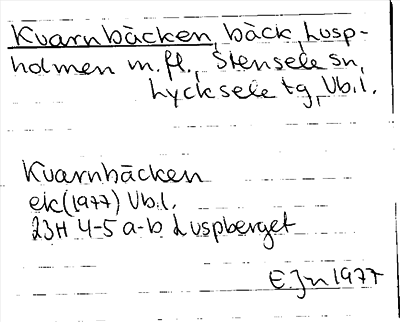 Kvarnbäcken, bäck, Lusp-
holmen m.fl., Stensele sn,
Lycksele tg, Vb.l.
Kvarnbäcken
ek(1977) Vb.l.
23H 4-5 a-b Luspberget
E.Jn 1977